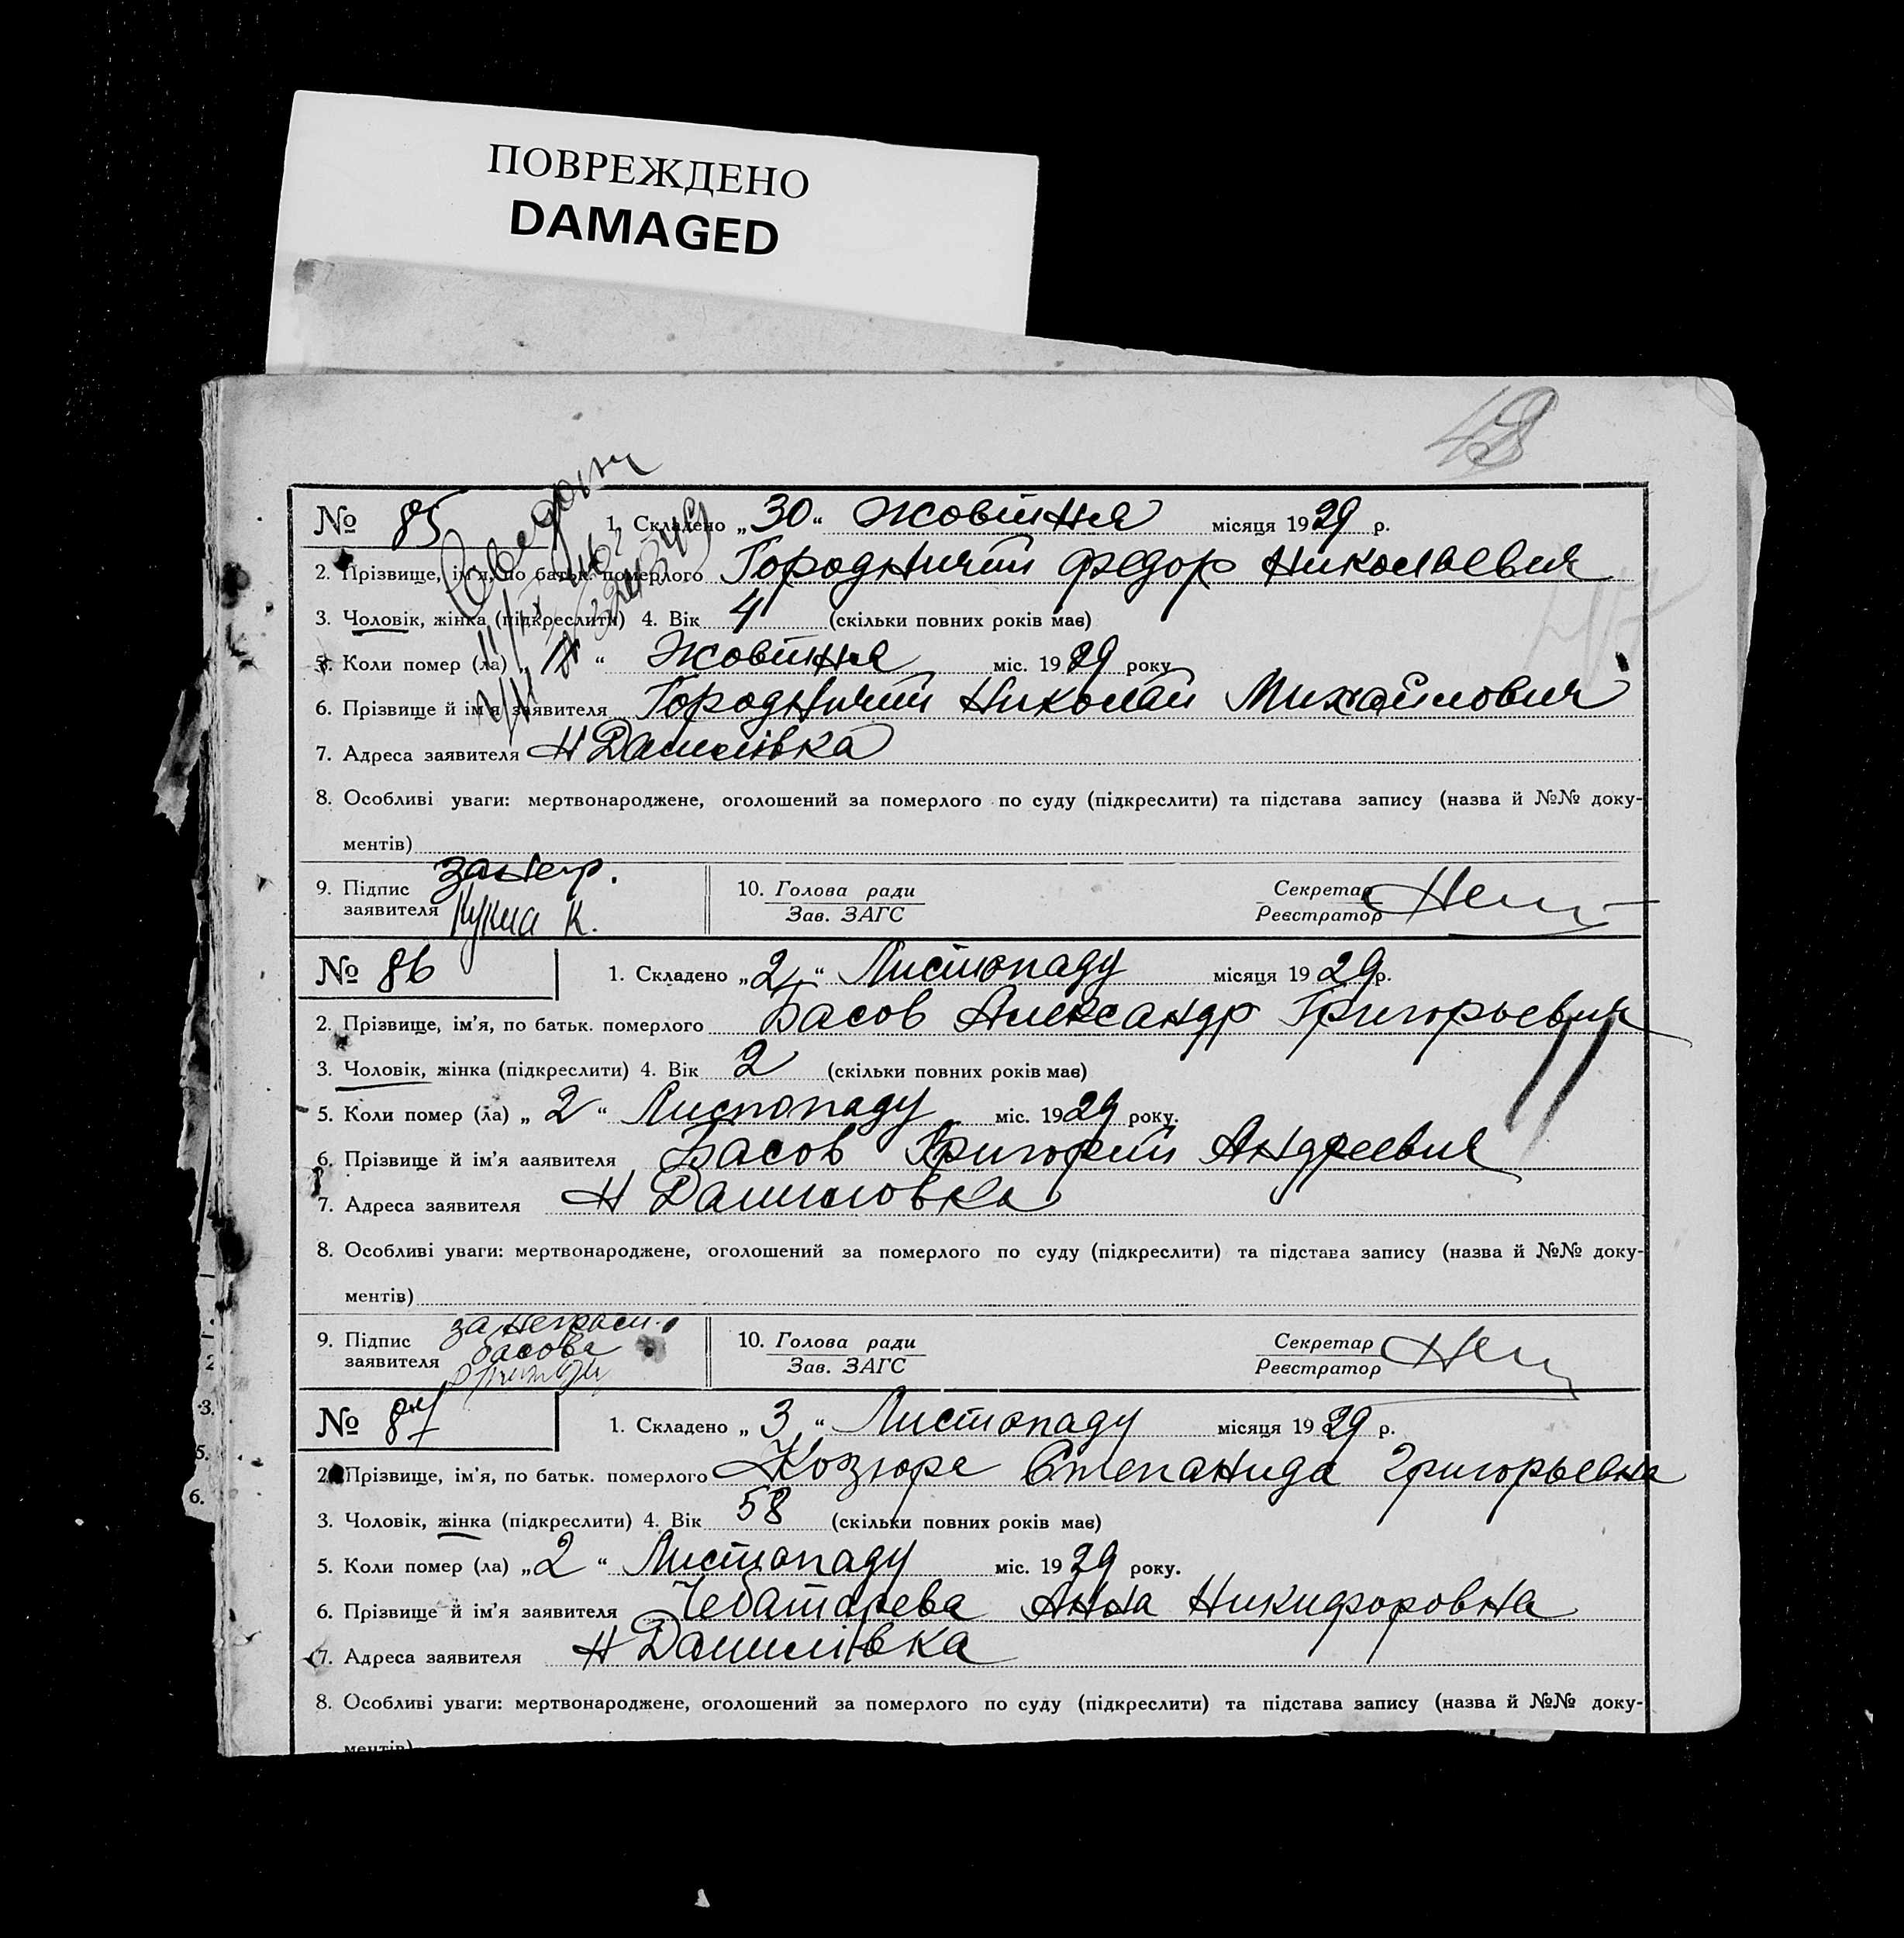 ПОВРЕЖДЕНО
DAMAGED
48
№ 85
1. Складено „30“ Жовтня місяця 1929 р.
2. Прізвище, ім'я, по батьк. померлого Городничий Федор Николаевич
3. Чоловік, жінка (підкреслити) 4. Вік 4 (скільки повних років має)
5. Коли помер (ла) „ “ Жовтня міс. 1929 року
6. Прізвище й ім'я заявителя Городничий Николай Михайлович
7. Адреса заявителя Н Данилівка
8. Особливі уваги: мертвонароджене, оголошений за померлого по суду (підкреслити) та підстава запису (назва й №№ доку-
ментів)
9. Підпис заявителя за негр. Кукла К.
10. Голова ради
Зав. ЗАГС
Секретар
Реєстратор
№ 86
1. Складено „2“ Листопаду місяця 1929 р.
2. Прізвище, ім'я, по батьк. померлого Басов Александр Григорьевич
3. Чоловік, жінка (підкреслити) 4. Вік 2 (скільки повних років має)
5. Коли помер (ла) „2“ Листопаду міс. 1929 року.
6. Прізвище й ім'я аявителя Басов Григорий Андреевич
7. Адреса заявителя Н Даниловка
8. Особливі уваги: мертвонароджене, оголошений за померлого по суду (підкреслити) та підстава запису (назва й №№ доку-
ментів)
9. Підпис заявителя за неграм. Басова
10. Голова ради
Зав. ЗАГС
Секретар
Реєстратор
№ 87
1. Складено „3“ Листопаду місяця 1929 р.
2. Прізвище, ім'я, по батьк. померлого Козюра Степанида Григорьевна
3. Чоловік, жінка (підкреслити) 4. Вік 58 (скільки повних років має)
5. Коли помер (ла) „2“ Листопаду міс. 1929 року.
6. Прізвище й ім'я заявителя Чебатарева Анна Никифоровна
7. Адреса заявителя Н Данилівка
8. Особливі уваги: мертвонароджене, оголошений за померлого по суду (підкреслити) та підстава запису (назва й №№ доку-
ментів)